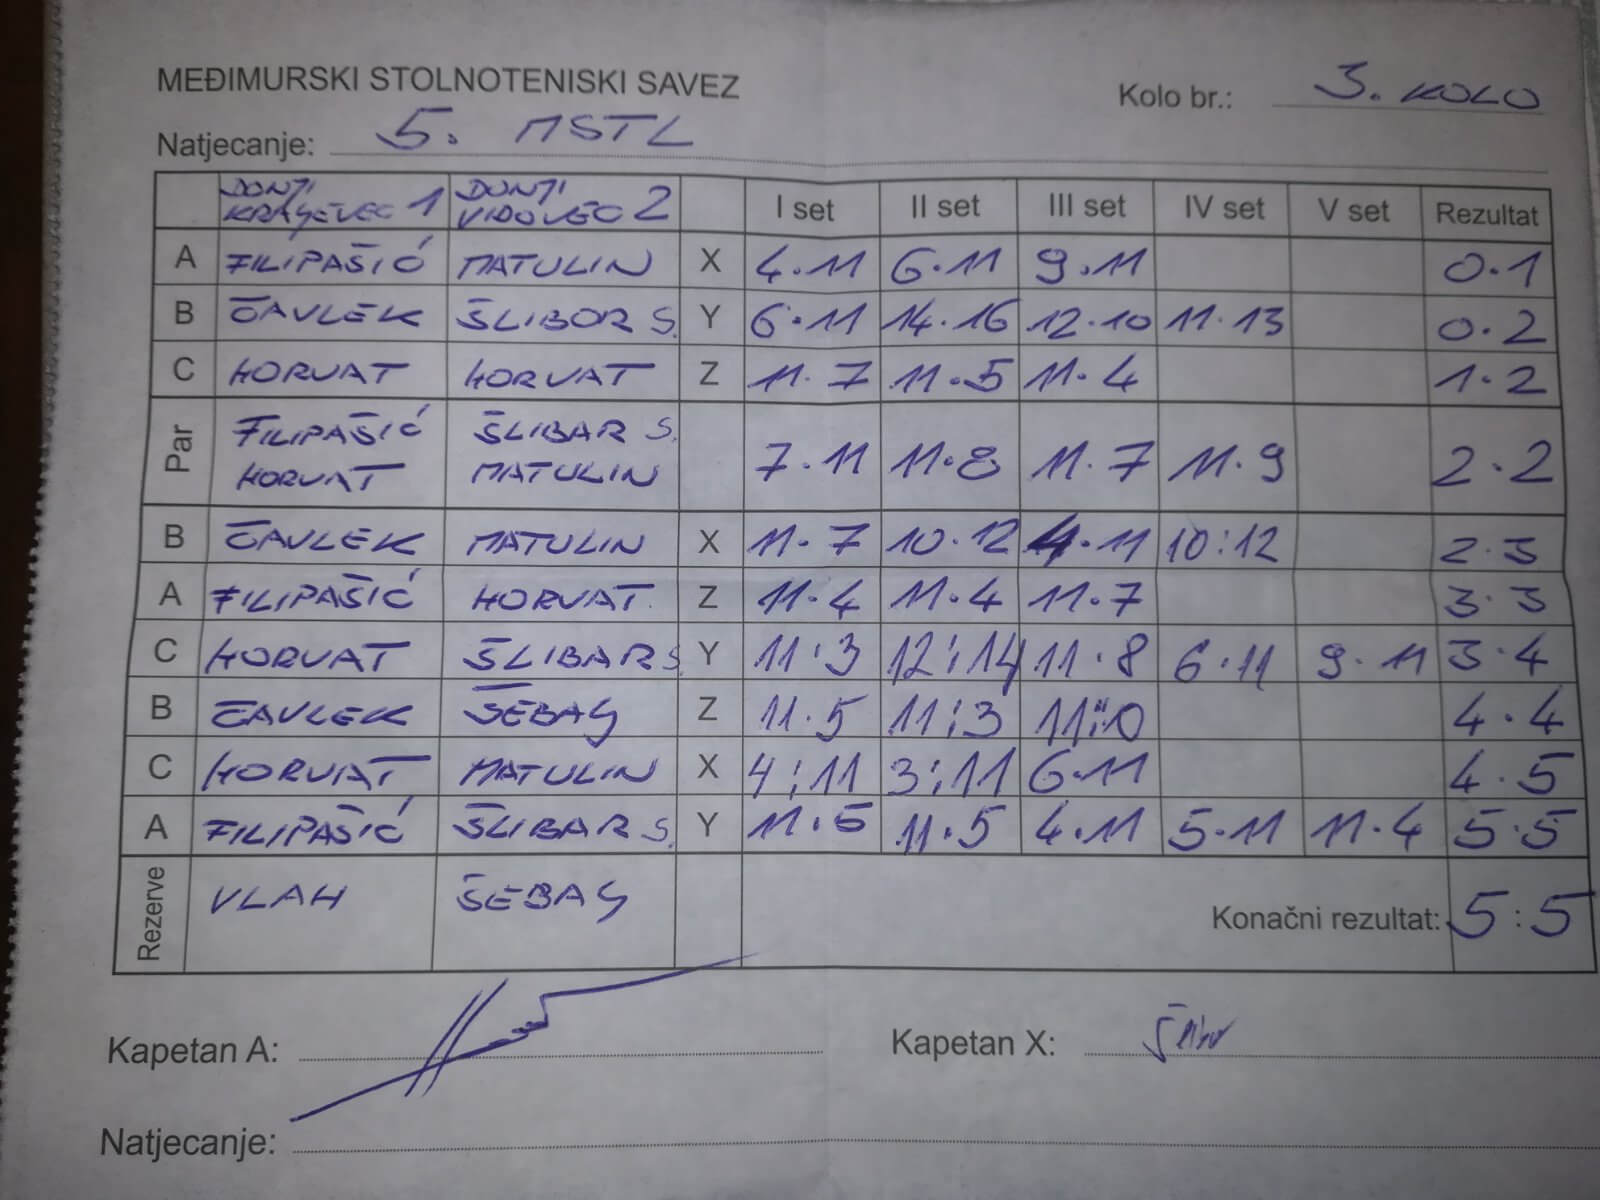 MEĐIMURSKI STOLNOTENISKI SAVEZ
Kolo br.: 3. KOLO
Natjecanje: 5. MSTL
DONJI KRALJEVEC 1 DONJI VIDOVEC 2 I set II set III set IV set V set Rezultat
A FILIPAŠIĆ MATULIN X 4.11 6.11 9.11 0.1
B ČAVLEK ŠLIBOR S. Y 6.11 14.16 12.10 11.13 0.2
C HORVAT HORVAT Z 11.7 11.5 11.4 1.2
Par FILIPAŠIĆ ŠLIBAR S.
HORVAT MATULIN 7.11 11.8 11.7 11.9 2.2
B ČAVLEK MATULIN X 11.7 10.12 4.11 10:12 2.3
A FILIPAŠIĆ HORVAT Z 11.4 11.4 11.7 3.3
C HORVAT ŠLIBAR S Y 11:3 12:14 11.8 6.11 9.11 3.4
B ČAVLEK ŠEBAY Z 11.5 11:3 11:0 4.4
C HORVAT MATULIN X 4:11 3:11 6.11 4.5
A FILIPAŠIĆ ŠLIBAR S. Y 11.6 11.5 4.11 5.11 11.4 5.5
Rezerve VLAH ŠEBAY Konačni rezultat: 5:5
Kapetan A:
Kapetan X:
Natjecanje: